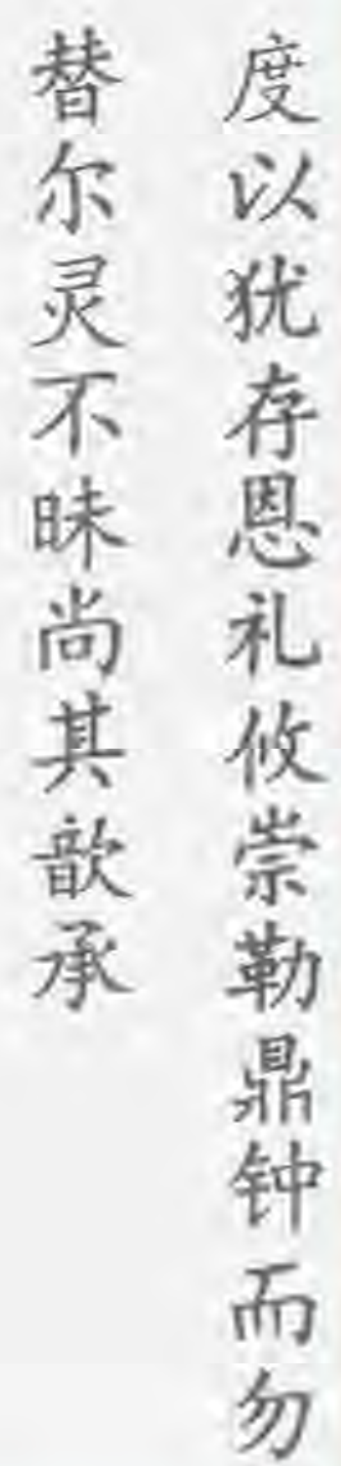 度以犹存恩礼攸崇勒鼎钟而勿
替尔灵不昧尚其歆承